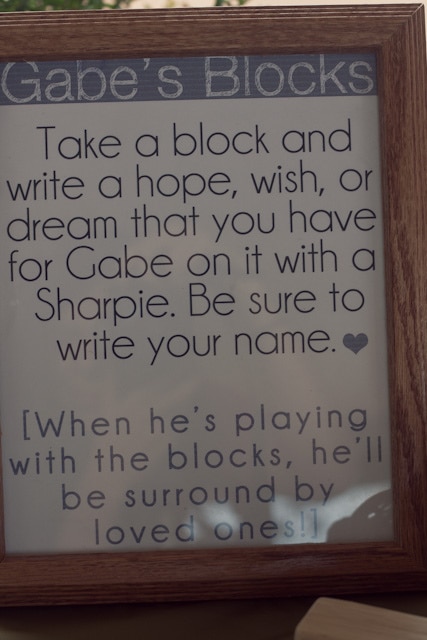 Gabe's Blocks
Take a block and
write a hope, wish, or
dream that you have
for Gabe on it with a
Sharpie. Be sure to
write your name.❤
[When he's playing
with the blocks, he'll
be surround by
loved ones!]